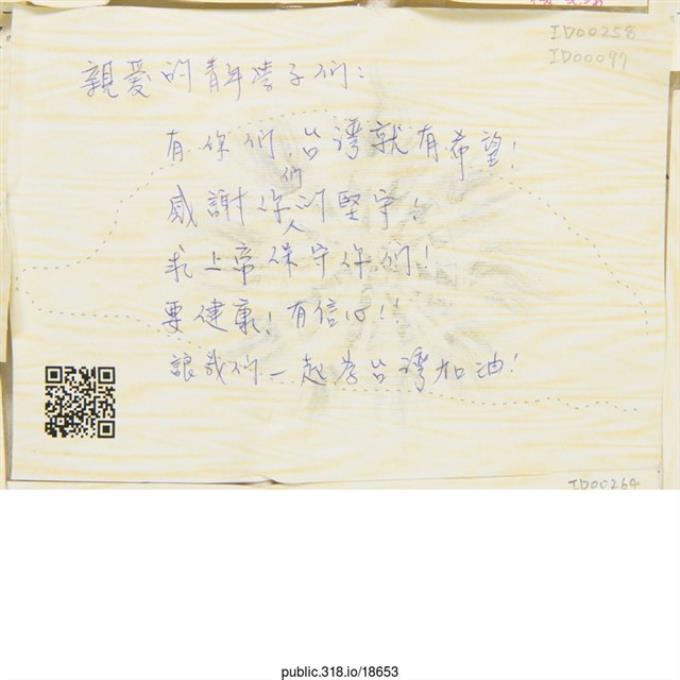 ID00258
ID00097
親愛的青年學子們：
有你們，台灣就有希望！
感謝你們的堅守。
求上帝保守你們！
要健康！有信心！！
讓我們一起為台灣加油！
ID00264
public.318.io/18653